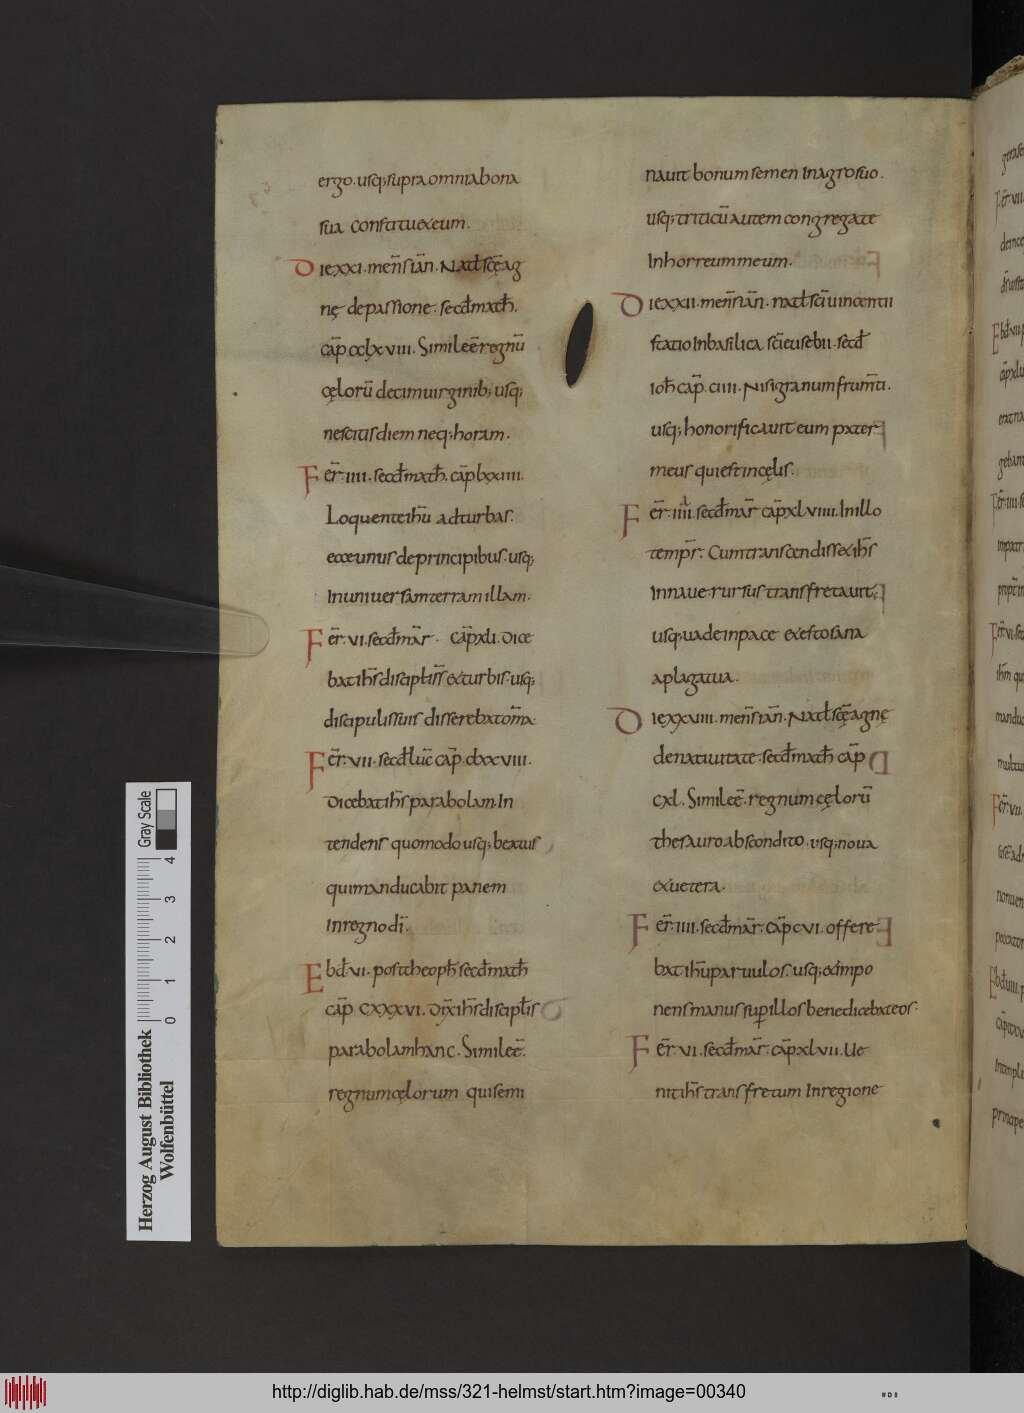 ergo. usq; supra omnia bona
sua constituet eum.
DIE XXI. men̄s iān. Natł scę̄ Ag
nę de passione. secđ math̄.
cap̄ cclxviii. Simile ē regnū
cęlorū decim uirginib; usq;
nescitis diem neq; horam.
Fer̄. iiii. secđ math̄. cap̄ lxxiiii.
Loquente ihū ad turbas.
ecce unus de principibus. usq;
In uniuersam terram illam.
Fer̄. vi. secđ mar̄. cap̄ xli. Dice
bat ih̄s discipłis s̄ & turbis. usq;
discipulis suis disserebat om̄a.
Fer̄. vii. secđ luc̄ cap̄. clxxviii.
Dicebat ih̄s parabolam. In
tendens quomodo usq; beatus
qui manducabit panem
in regno dī.
Ebđ. vi. post theoph̄ secđ math̄
cap̄ cxxxvi. Dix̄ ih̄s discipłis
parabolam hanc. Simile ē.
regnum cęlorum qui semi
nauit bonum semen In agro suo.
usq; triticū autem congregate
In horreum meum.
DIE XXII. men̄s iān. natł scī uincentii
statio In basilica scī eusebii. secđ
ioh̄ cap̄. ciiii. Nisi granum frum̄ti.
usq; honorificauit eum pater
meus qui est in cęlis.
Fer̄. iiii. secđ mar̄ cap̄ xlviiii. In illo
temp̄r. Cum transcendisset ih̄s
In naue. rursus transfretauit.
usq; uade in pace & esto sana
a plaga tua.
DIE XXVIII. men̄s iān. Natł scę̄ agnę
de natiuitate. secđ math̄ cap̄
cxl. Simile ē. regnum cęlorū
thesauro abscondito. usq; noua
& uetera.
Fer̄. iiii. secđ mar̄. cap̄ cvi. offere
bat ihū paruulos. usq; & īmpo
nens manus sup illos benedicebat eos.
Fer̄. vi. secđ mar̄. cap̄ xlvii. Ue
nit ih̄s trans fretum In regione
Gray Scale
0 1 2 3 4
Herzog August Bibliothek
Wolfenbüttel
http://diglib.hab.de/mss/321-helmst/start.htm?image=00340